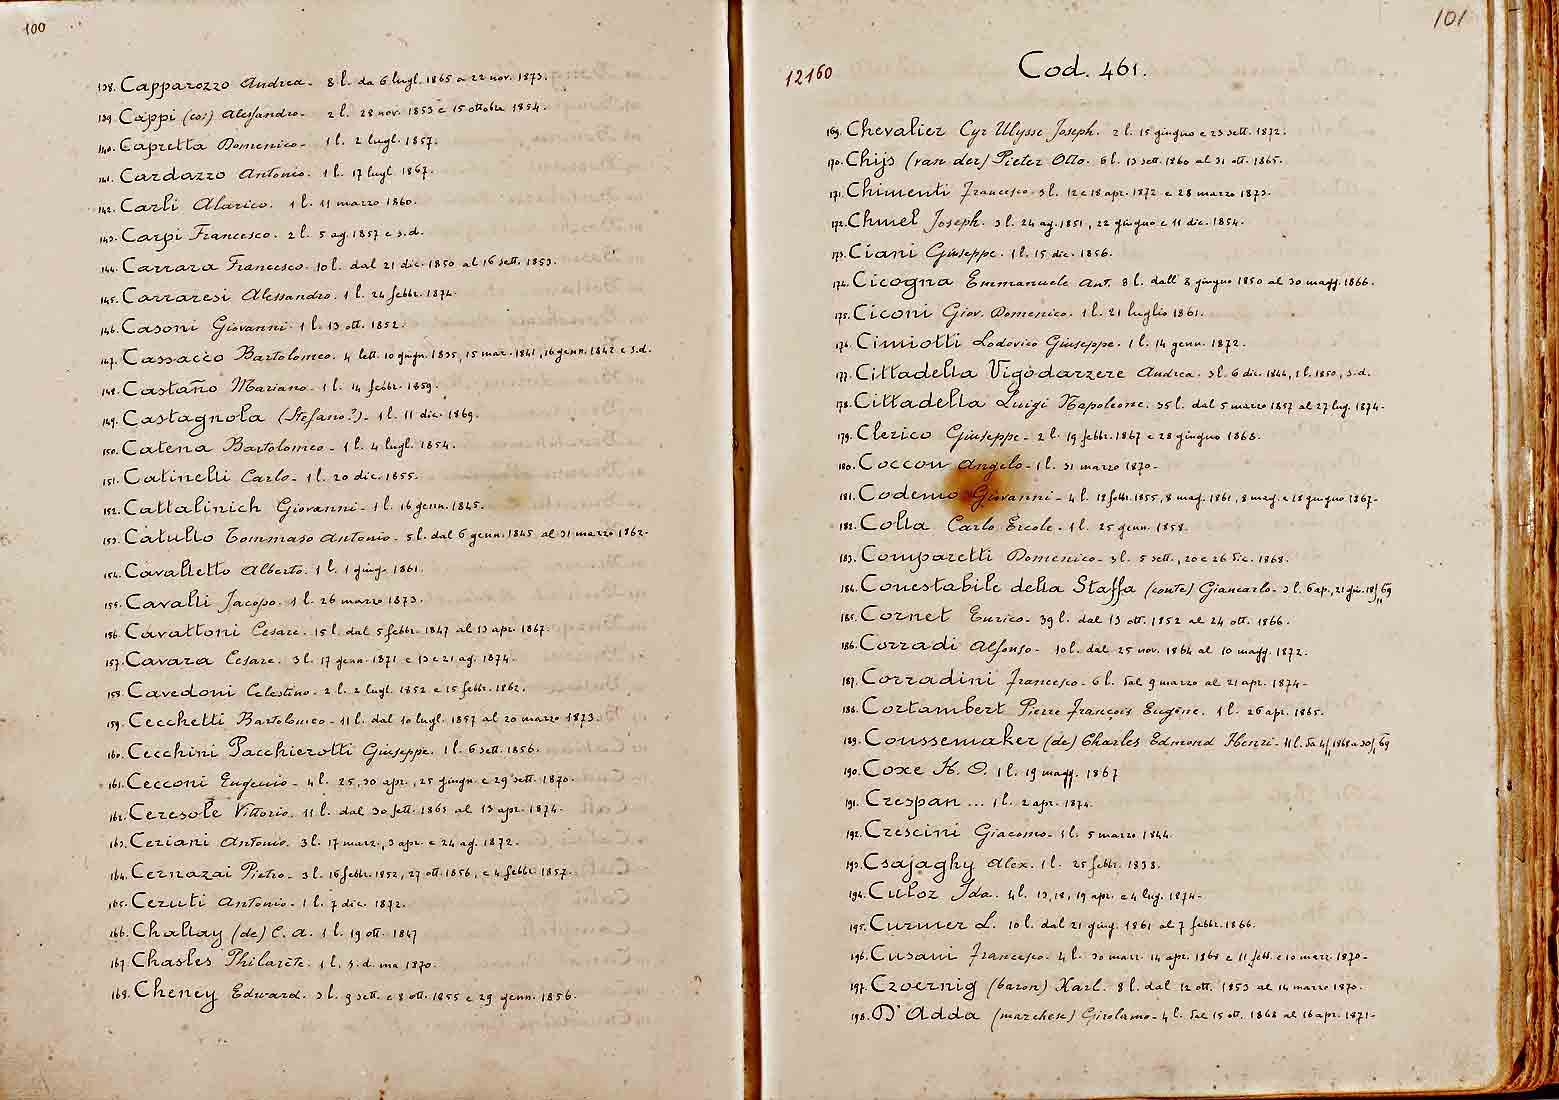 100
138. Capparozzo Andrea - 8 l. da 6 lugl. 1865 a 22 nov. 1873.
139. Cappi (co:) Alessandro - 2 l. 28 nov. 1853 e 15 ottobre 1854.
140. Capretta Domenico - 1 l. 2 lugl. 1857.
141. Cardazzo Antonio. 1 l. 17 lugl. 1867.
142. Carli Alarico. 1 l. 11 marzo 1860.
143. Carpi Francesco. 2 l. 5 ag. 1857 e s.d.
144. Carrara Francesco. 10 l. dal 21 dic. 1850 al 16 sett. 1853.
145. Carraresi Alessandro. 1 l. 24 febbr. 1874.
146. Casoni Giovanni. 1 l. 13 ott. 1852.
147. Cassacco Bartolomeo. 4 lett. 10 giugn. 1835, 15 mar. 1841, 16 genn. 1842 e s.d.
148. Castaño Mariano. 1 l. 14 febbr. 1859.
149. Castagnola (Stefano?) - 1 l. 11 dic. 1869.
150. Catena Bartolomeo - 1 l. 4 lugl. 1854.
151. Catinelli Carlo - 1 l. 20 dic. 1855.
152. Cattalinich Giovanni - 1 l. 16 genn. 1845.
153. Catullo Tommaso Antonio - 5 l. dal 6 genn. 1845 al 31 marzo 1862.
154. Cavalletto Alberto. 1 l. 1 giug. 1861.
155. Cavalli Jacopo. 1 l. 26 marzo 1873.
156. Cavattoni Cesare. 15 l. dal 5 febbr. 1847 al 13 apr. 1867.
157. Cavara Cesare. 3 l. 17 genn. 1871 e 13 e 21 ag. 1874.
158. Cavedoni Celestino - 2 l. 2 lugl. 1852 e 15 febbr. 1862.
159. Cecchetti Bartolomeo - 11 l. dal 10 lugl. 1857 al 20 marzo 1873.
160. Cecchini Pacchierotti Giuseppe. 1 l. 6 sett. 1856.
161. Cecconi Eugenio - 4 l. 25, 30 apr., 25 giugn. e 29 sett. 1870.
162. Ceresole Vittorio. 11 l. dal 30 sett. 1869 al 13 apr. 1874.
163. Ceriani Antonio. 3 l. 17 marz., 3 apr. e 24 ag. 1872.
164. Cernazai Pietro - 3 l. 16 febbr. 1852, 27 ott. 1856, e 4 febbr. 1857.
165. Ceruti Antonio - 1 l. 7 dic. 1872.
166. Challay (de) C. A. 1 l. 19 ott. 1847
167. Chasles Philarète. 1 l. s.d. ma 1870.
168. Cheney Edward. 3 l. 9 sett. e 8 ott. 1855 e 29 genn. 1856.
101
12160
Cod. 461.
169. Chevalier Cyr Ulysse Joseph. 2 l. 15 giugno e 23 sett. 1872.
170. Chijs (van der) Pieter Otto. 6 l. 13 sett. 1860 al 31 ott. 1865.
171. Chimenti Francesco - 3 l. 12 e 18 apr. 1872 e 28 marzo 1873.
172. Chmel Joseph. 3 l. 24 ag. 1851, 22 giugno e 11 dic. 1854.
173. Ciani Giuseppe. 1 l. 15 dic. 1856.
174. Cicogna Emmanuele Ant. 8 l. dall' 8 giugno 1850 al 30 magg. 1866.
175. Ciconi Giov. Domenico. 1 l. 21 luglio 1861.
176. Cimiotti Lodovico Giuseppe. 1 l. 14 genn. 1872.
177. Cittadella Vigodarzere Andrea. 3 l. 6 dic. 1844, 1 l. 1850, s.d.
178. Cittadella Luigi Napoleone. 35 l. dal 5 marzo 1857 al 27 lug. 1874.
179. Clerico Giuseppe - 2 l. 19 febbr. 1867 e 28 giugno 1868.
180. Coccon Angelo - 1 l. 31 marzo 1870.
181. Codemo Giovanni - 4 l. 18 febbr. 1855, 8 mag. 1861, 8 mag. e 18 giugno 1867.
182. Colla Carlo Ercole. 1 l. 25 genn. 1858.
183. Comparetti Domenico - 3 l. 5 sett., 20 e 26 dic. 1868.
184. Conestabile della Staffa (conte) Giancarlo - 3 l. 6 ap., 21 giu.
185. Cornet Enrico. 39 l. dal 13 ott. 1852 al 24 ott. 1866.
186. Corradi Alfonso - 10 l. dal 25 nov. 1864 al 10 magg. 1872.
187. Corradini Francesco - 6 l. dal 9 marzo al 21 apr. 1874.
188. Cortambert Pierre François Eugène. 1 l. 26 apr. 1865.
189. Coussemaker (de) Charles Edmond Henri - 11 l.
190. Coxe H. O. 1 l. 19 magg. 1867
191. Crespan ... 1 l. 2 apr. 1874.
192. Crescini Giacomo - 1 l. 5 marzo 1844.
193. Csajaghy Alex. 1 l. 25 febbr. 1838.
194. Culoz Ida. 4 l. 13, 18, 19 apr. e 4 lug. 1874.
195. Curmer L. 10 l. dal 21 giug. 1861 al 7 febbr. 1866.
196. Cusani Francesco. 4 l. 30 marz. 14 apr. 1868 e 11 febb. e 10 marz. 1870.
197. Czoernig (baron) Karl. 8 l. dal 12 ott. 1853 al 14 marzo 1870.
198. D'Adda (marchese) Girolamo - 4 l. dal 15 ott. 1868 al 16 apr. 1871.